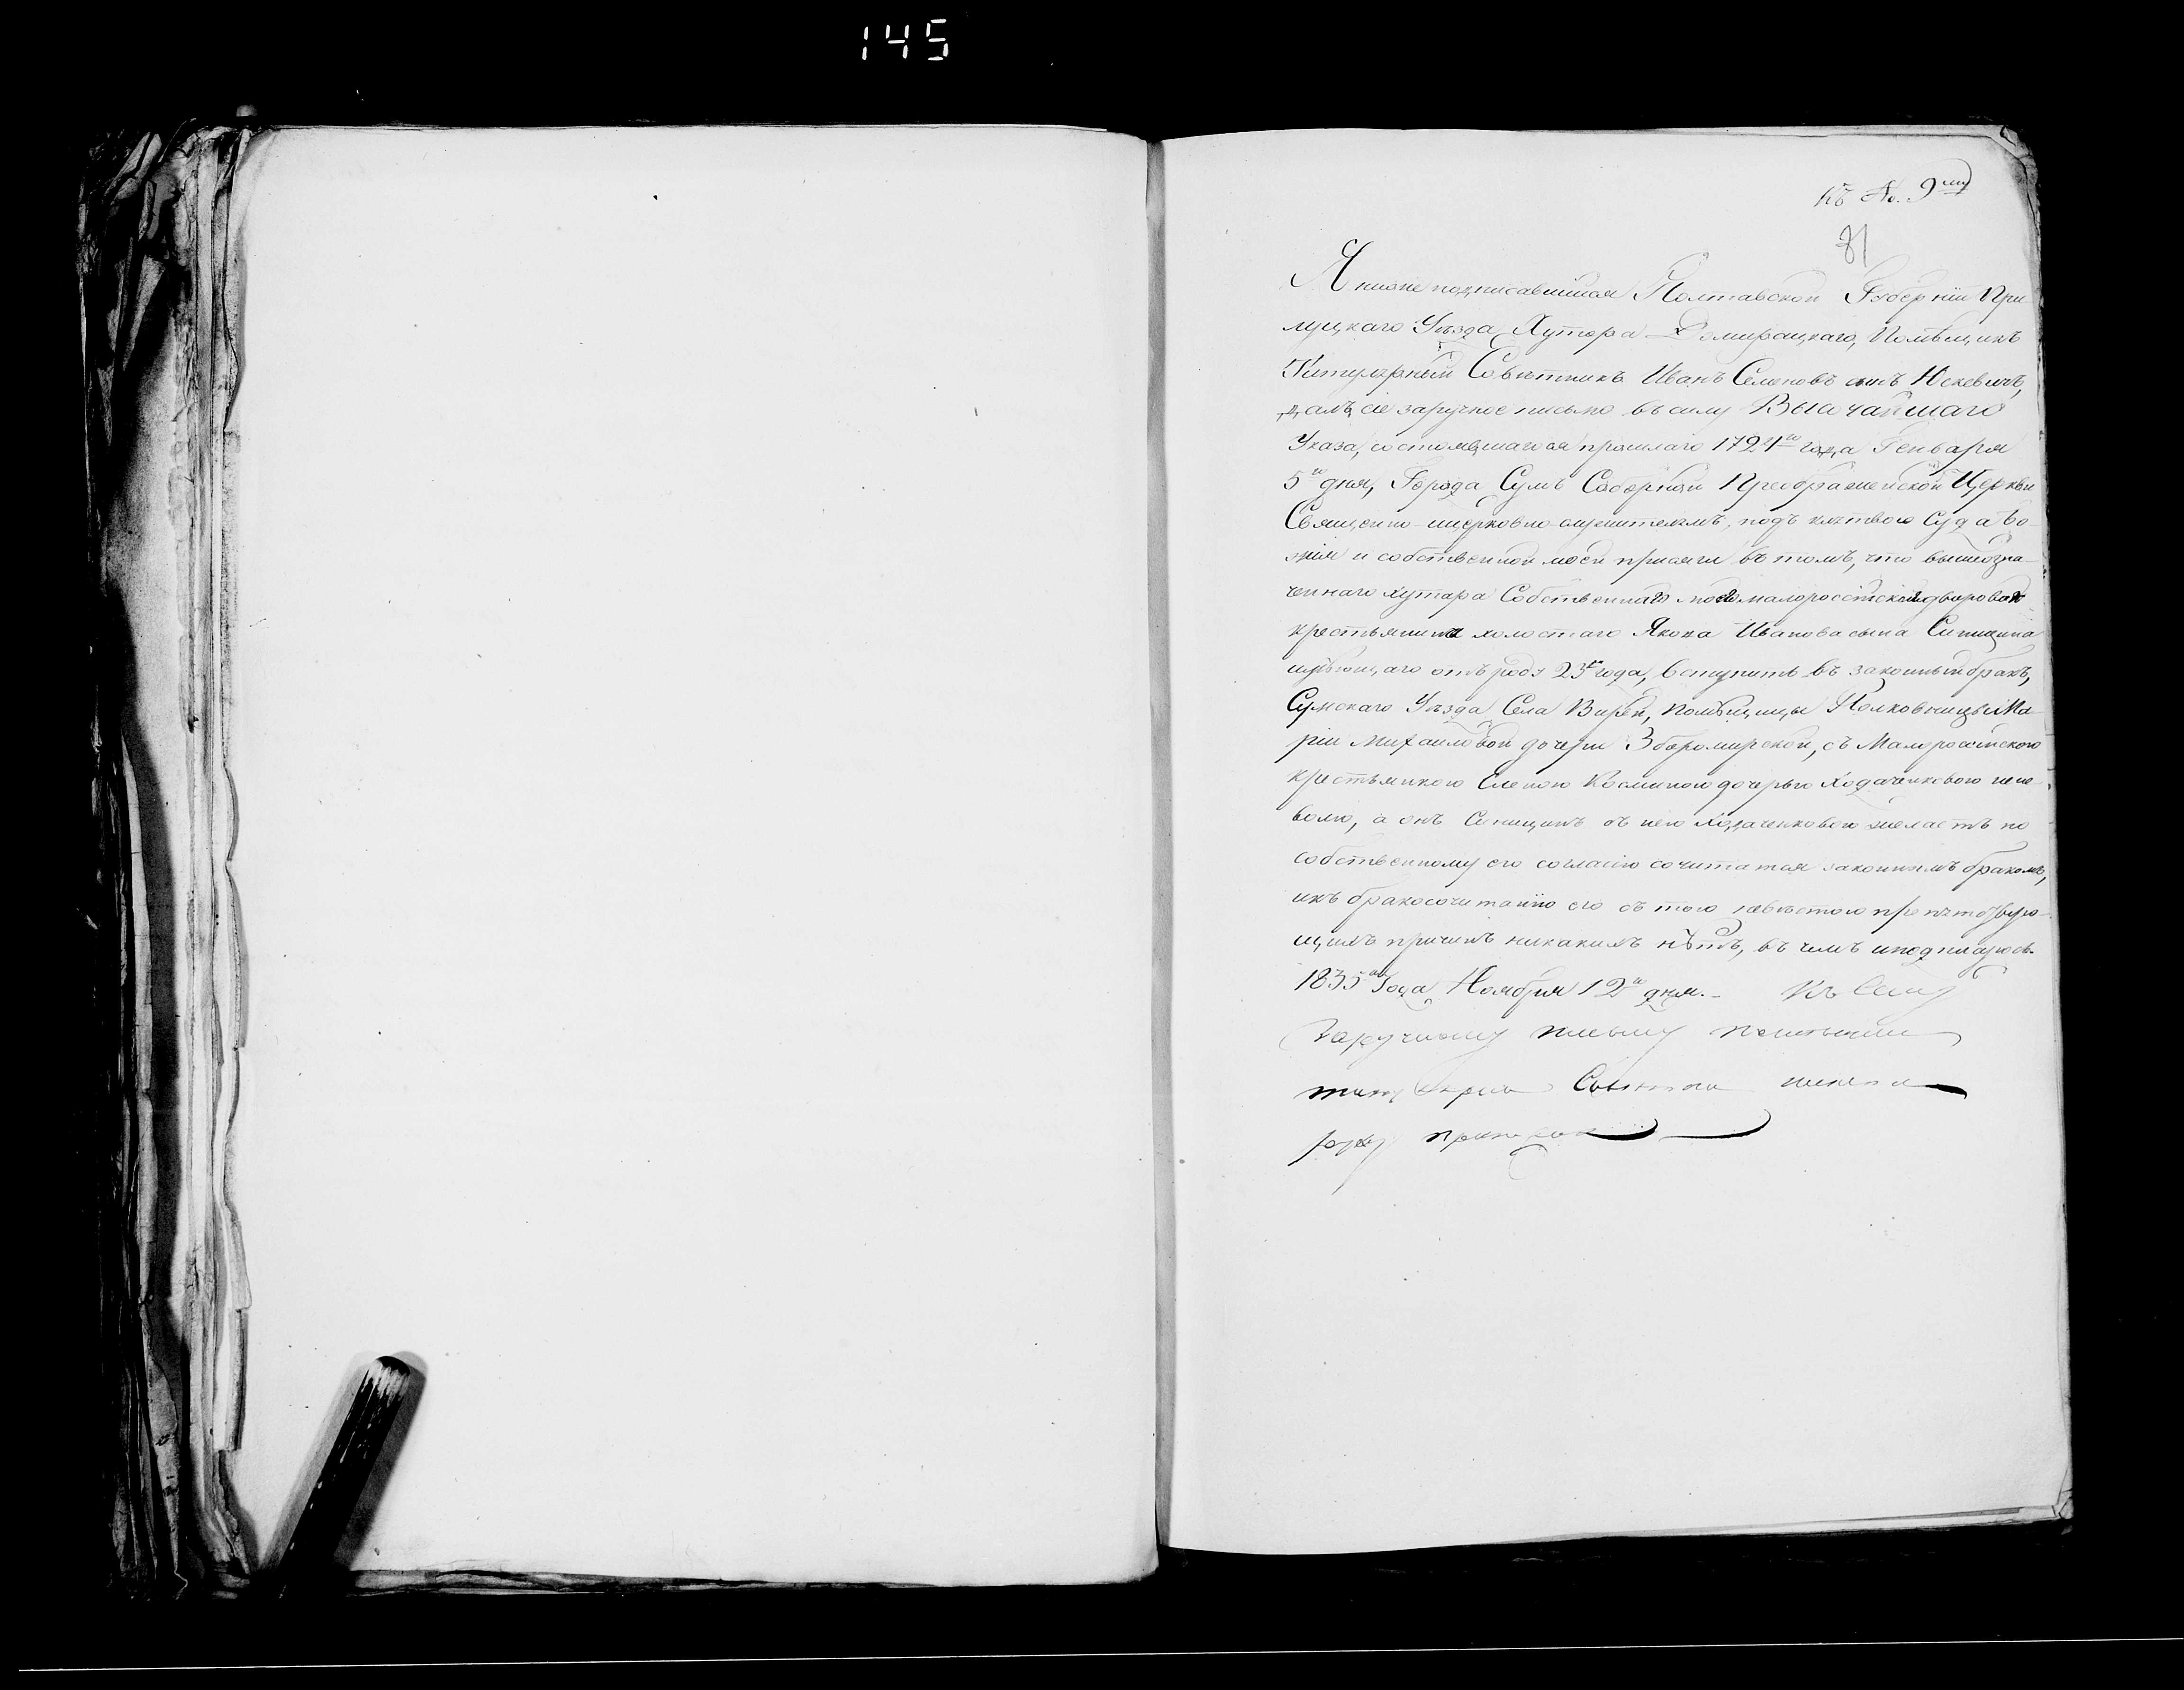 145
Къ No. 9му
81
Я ниже подписавшійся Полтавской Губерніи При
луцкаго Уѣзда Хутора Домирацкаго, Помѣщикъ
Титулярный Совѣтникъ Иванъ Семеновъ сынъ Юскевичъ,
далъ сіе заручное письмо въ силу Высочайшаго
Указа, состоявшагося прошлаго 1724го года Генваря
5го дня, Города Сумъ Соборной Преображенской Церкви
Священно-церковно-служителямъ, подъ клятвою Суда Бо-
жія и собственной моей присяги въ томъ, что вышеозна-
ченнаго хутора Собственнаго моего малороссійскаго двороваго
крестьянина холостаго Якова Иванова сына Синицина
имѣющаго отъ роду 23 года, вступить въ законный бракъ,
Сумскаго Уѣзда Села Вирей, помѣщицы Полковницы Ма-
ріи Михайловой дочери Збаромирской, съ Малороссійскою
крестьянкою Еленою Косминою дочерью Ходаченковою нене-
волю, а онъ Синицинъ съ нею Ходаченковою желаетъ по
собственному его согласію сочитатся законнымъ бракомъ,
и къ бракосочитанію его съ тою невѣстою препятствую-
щихъ причинъ никакихъ нѣтъ, въ чемъ и подписуюсь.
1835го Года Ноября 12го дня. Къ Сему
Заручному письму
Совѣтникъ
руку приложилъ